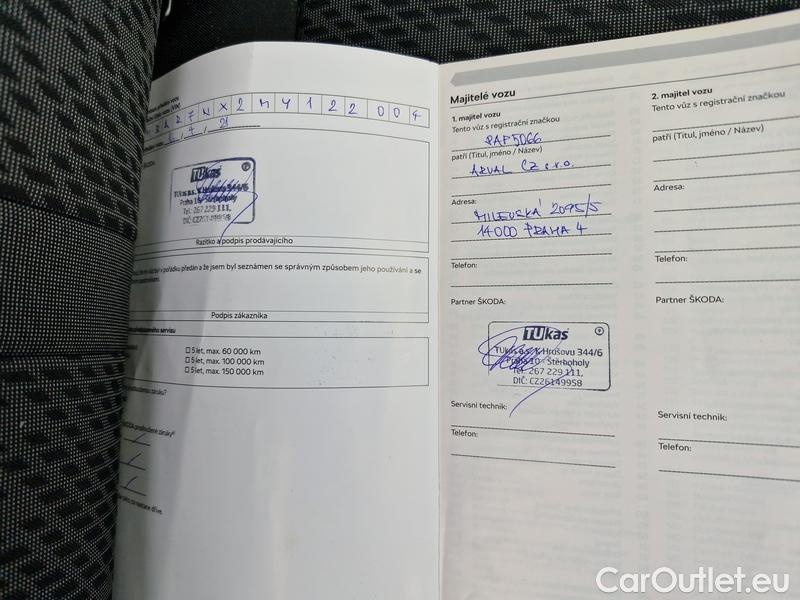 7 N X 2 M Y 1 2 2 0 0 4
ŠKODA:
TUkas
TUkas a.s., K Hrušovu 344/6
Praha 10 - Štěrboholy
Tel.: 267 229 111,
DIČ: CZ26149958
Razítko a podpis prodávajícího
v pořádku předán a že jsem byl seznámen se správným způsobem jeho používání a se
Podpis zákazníka
předplaceného servisu
5 let, max. 60 000 km
5 let, max. 100 000 km
5 let, max. 150 000 km
prodlouženou záruku?
ŠKODA prodloužené záruky
co nastane dříve.
Majitelé vozu
1. majitel vozu
Tento vůz s registrační značkou
patří (Titul, jméno / Název)
ARVAL CZ s.r.o.
Adresa:
MILEVSKÁ 2095/5
14000 PRAHA 4
Telefon:
Partner ŠKODA:
TUkas
TUkas a.s., K Hrušovu 344/6
Praha 10 - Štěrboholy
Tel.: 267 229 111,
DIČ: CZ26149958
Servisní technik:
Telefon:
2. majitel vozu
Tento vůz s registrační značkou
patří (Titul, jméno / Název):
Adresa:
Telefon:
Partner ŠKODA:
Servisní technik:
Telefon:
CarOutlet.eu